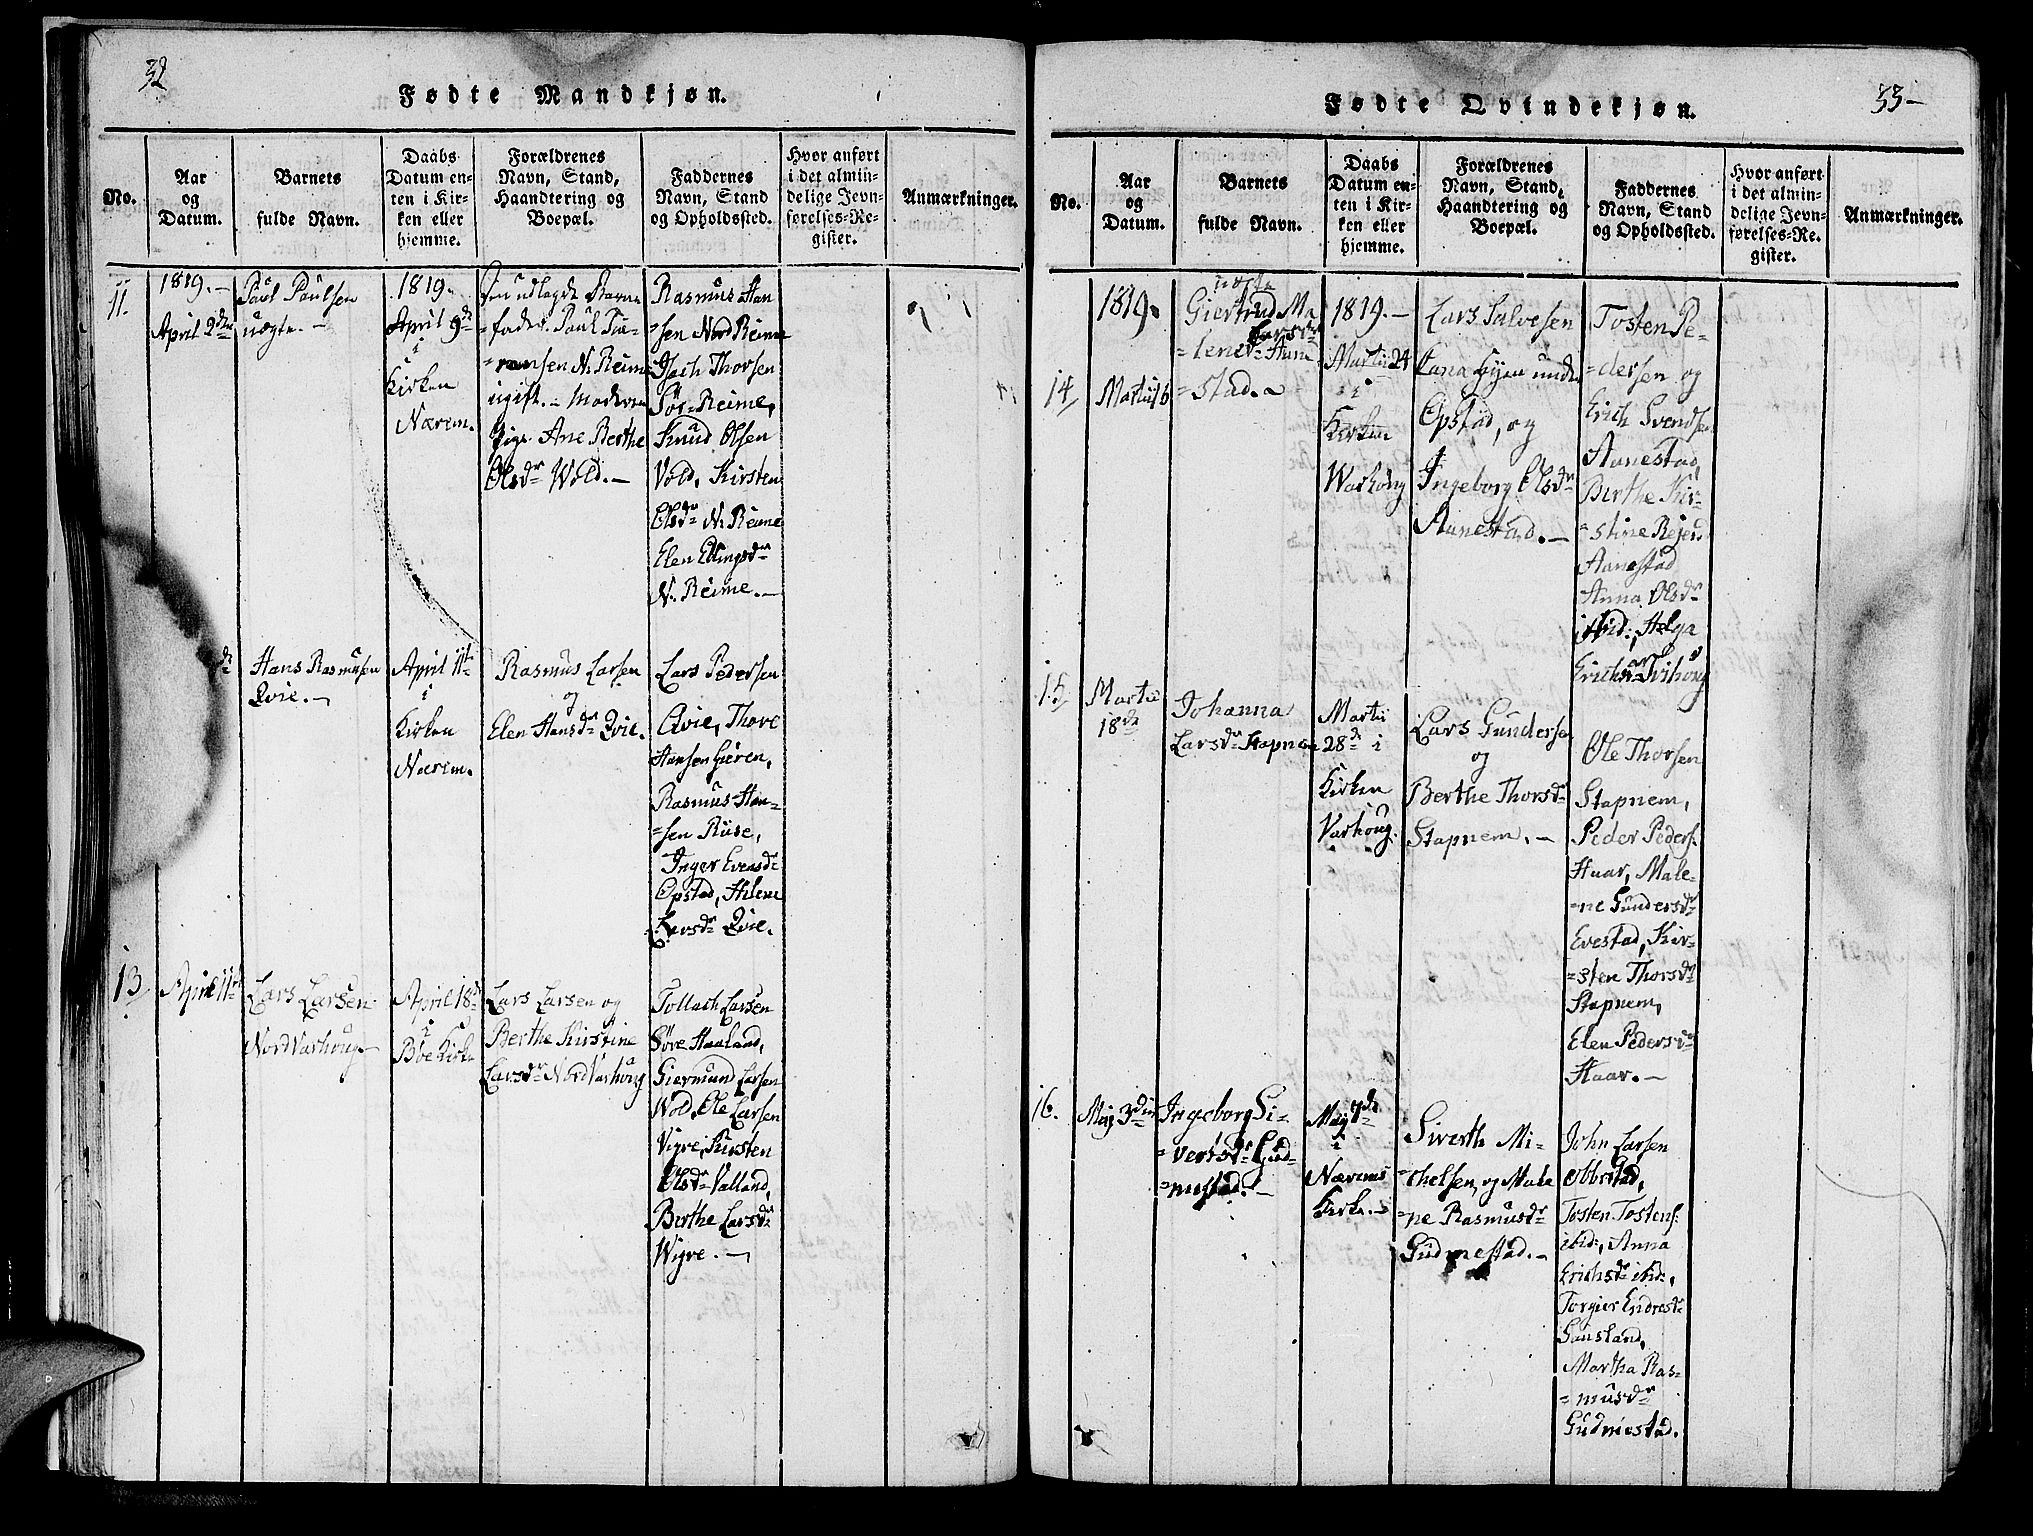 32
Fødte Mandkjøn.
No.
Aar
og
Datum.
Barnets
fulde Navn.
Daabs
Datum en-
ten i Kir-
ken eller
hjemme.
Forældrenes
Navn, Stand,
Haandtering og
Boepæl.
Faddernes
Navn, Stand
og Opholdssted.
Hvor anført
i det almin-
delige Jevn-
førelses-Re-
gister.
Anmærkninger.
11.
1819.-
April 2den
Paul Paulsen
uægte.-
1819.
April 9de
i
Kirken
Nærem.
Den udlagde Barne
=fader Paul
N. Reime
ugift.- Moderen
Pige Ane Berthe
Olsdr Wold.-
Rasmus Han
=sen Nord Reime
Isach Thorsen
Sør-Reime,
Knud Olsen
Vold, Kirsten
Olsdr N. Reime
Elen Ellingsdr
N. Reime.-
de
Hans Rasmusen
Qvie.-
April 11te
i
Kirken
Nærem.
Rasmus Larsen
og
Elen Hansdr Qvie.
Lars Pedersen
Qvie, Thore
Hansen Gieren,
Rasmus Han=
=sen Riise,
Inger Evensdr
Opstad, Helene
Larsdr Qvie.
13
April 11te
Lars Larsen
Nord Varhoug-
April 18de
i
Boe Kirke
Lars Larsen og
Berthe Kirstine
Larsdr Nord Varhoug
Tollach Larsen
Søre Haaland,
Giermund Larsen
Wold, Ole Larsen
Vigre, Kirsten
Olsdr Valland,
Berthe Larsdr
Wigre.-
33-
Fødte Qvindekjøn.
No.
Aar
og
Datum.
Barnets
fulde Navn.
Daabs
Datum en-
ten i Kir-
ken eller
hjemme.
Forældrenes
Navn, Stand,
Haandtering og
Boepæl.
Faddernes
Navn, Stand
og Opholdssted.
Hvor anført
i det almin-
delige Jevn-
førelses-Re-
gister.
Anmærkninger.
14
1819.
Martii 16
uægte
Giertrud Ma
Larsdr
=lene Aane
=stad.
1819.-
Martii 24
i
Kirken
Warhoug
Lars Salvesen
under
Opstad, og
Ingeborg Olsdr
Aanestad.-
Tosten Pe=
=dersen og
Erich Svendsen
Aanestad,
Berthe Kir=
=stine
Aanestad
Anna Olsdr
ibid:, Helga
15
Martii
18de
Johanna
Larsdr Stapnem
Martii
28de i
Kirken
Varhoug.
Lars Gundersen
og
Berthe Thorsdr
Stapnem.-
Ole Thorsen
Stapnem,
Peder Peders.
Haar, Male=
=ne Gundersdr
Evestad, Kir=
=sten Thorsdr
Stapnem,
Elen Pedersdr
Haar.-
16.
Maj 3die
Ingeborg Si=
=vertsdr Gud=
=mestad.-
Maj 7de
i
Nærems
Kirke.-
Siverth Mi=
=chelsen, og Male
=ne Rasmusdr
Gudmestad.-
John Larsen
Obbestad,
Tosten Tostens.
ibid:, Anna
Erichsdr ibid:,
Torgier Endresdr
Sansland,
Martha Ras=
=musdr
Gudmestad.